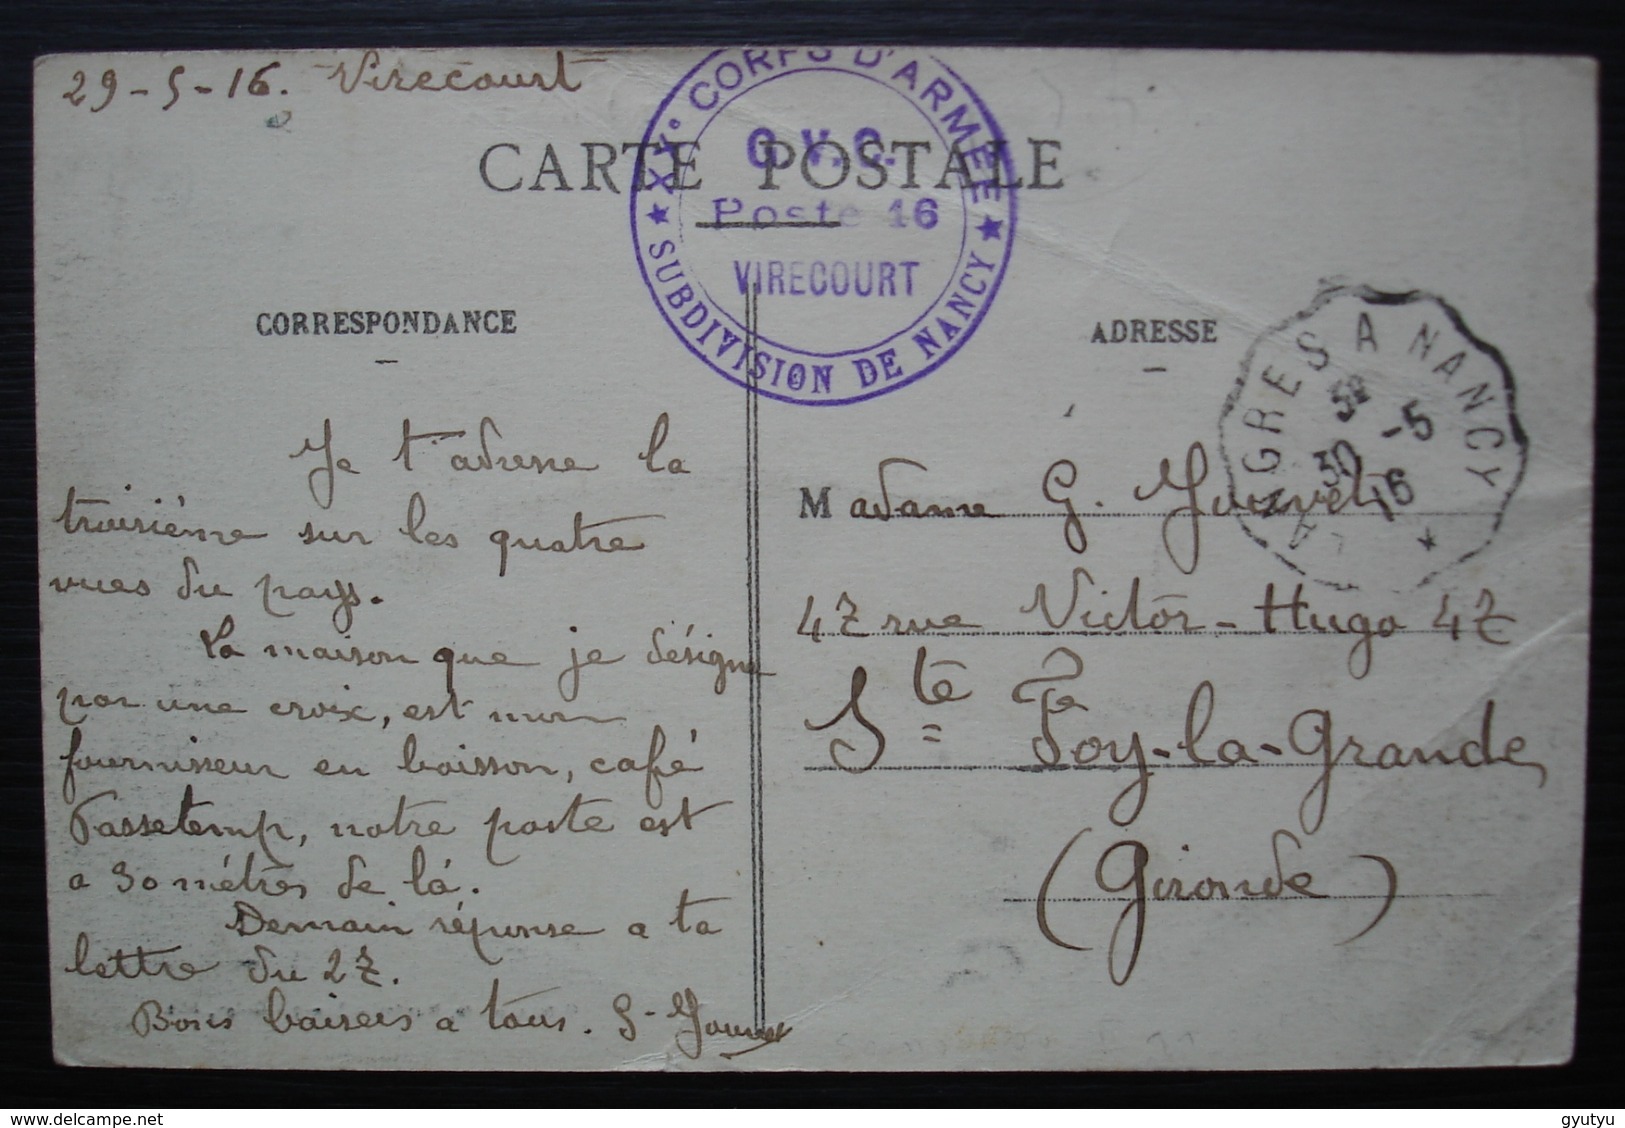 29-5-16. Virecourt
CARTE POSTALE
XXe CORPS D'ARMÉE
G.V.C.
Poste 16
VIRECOURT
SUBDIVISION DE NANCY
CORRESPONDANCE
ADRESSE
LANGRES A NANCY
30 -5
16
Je t'adresse la
troisième sur les quatre
vues du pays.
La maison que je désigne
par une croix, est mon
fournisseur en boisson, café
Passetemp, notre poste est
a 30 mètres de là.
Demain réponse a ta
lettre du 27.
Bons baisers a tous. G-
Madame G.
47 rue Victor-Hugo 47
Ste Foy-la-Grande
(Gironde)
gyutyu